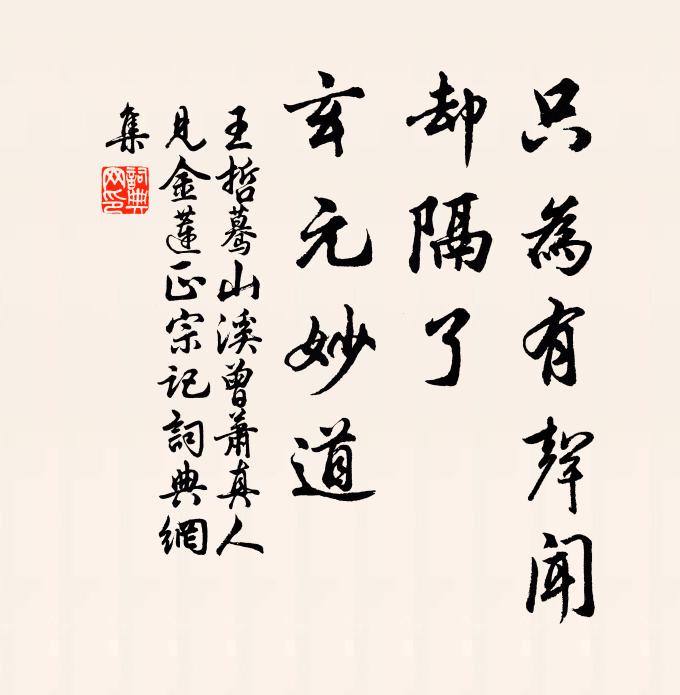 只為有聲聞
却隔了
玄元妙道
王哲驀山溪曾蕭真人
見金蓮正宗記詞典網
集
詞典
网印